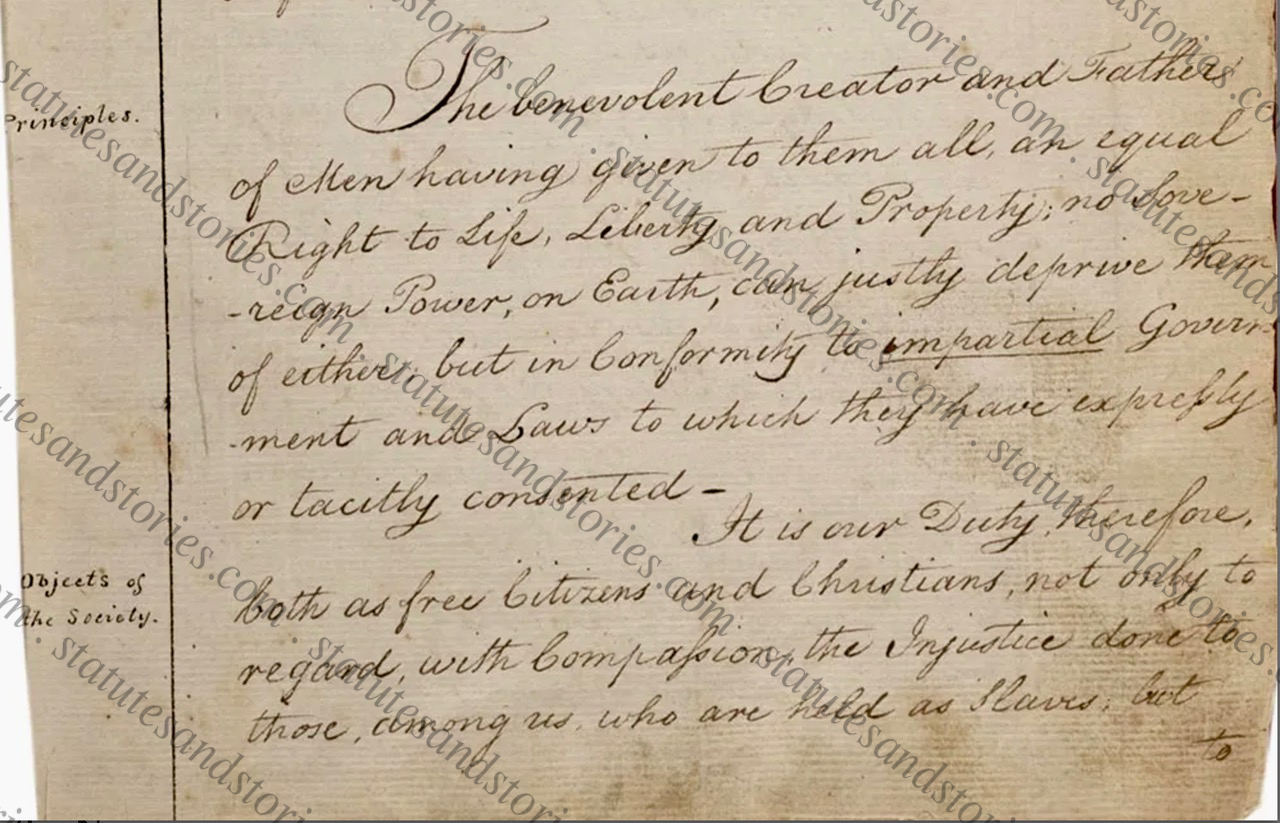 Principles.
The benevolent Creator and Father
of Men having given to them all, an equal
Right to Life, Liberty, and Property; no Sove-
-reign Power, on Earth, can justly deprive them
of either; but in Conformity to impartial Govern
-ment and Laws to which they have expressly
or tacitly consented -
It is our Duty, therefore,
both as free Citizens and Christians, not only to
Objects of
the Society.
regard, with Compassion, the Injustice done to
those, among us, who are held as Slaves; but
to
statutesandstories.com